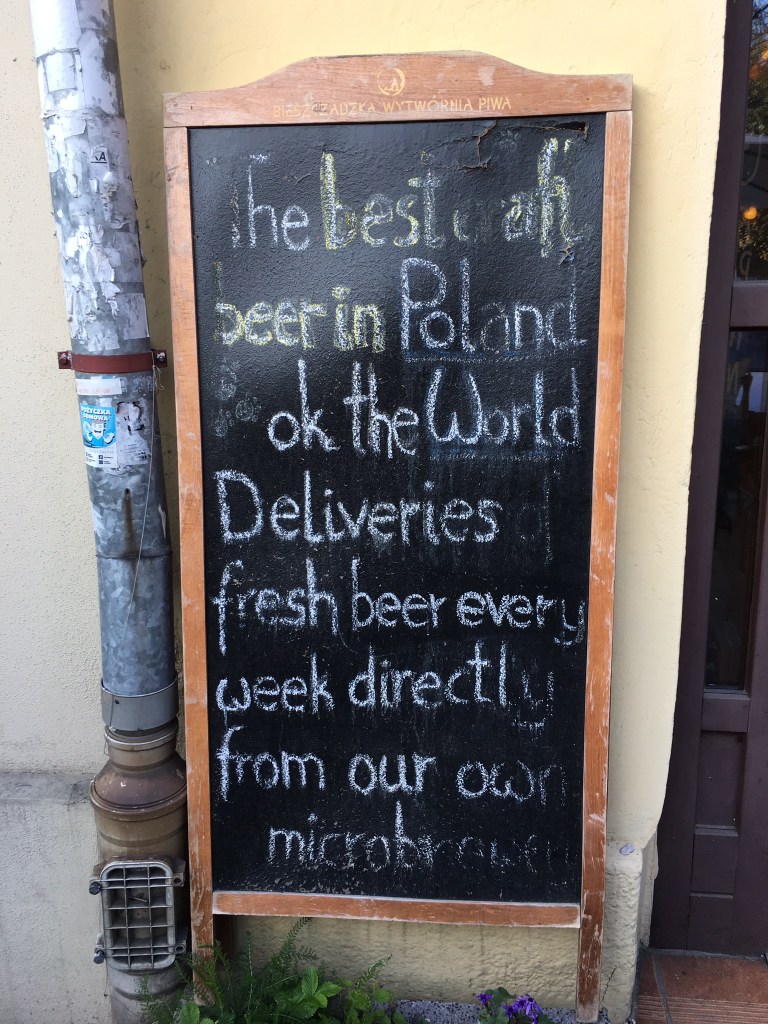 BIESZCZADZKA WYTWÓRNIA PIWA
The best craft
beer in Poland
ok the World
Deliveries of
fresh beer every
week directly
from our own
microbrewery
POŻYCZKA
DOMOWA